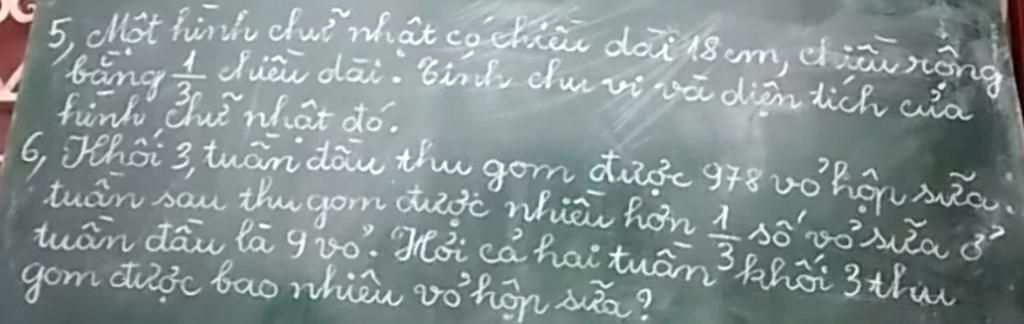 5, Một hình chữ nhật có chiều dài 18 cm, chiều rộng
bằng 1/3 chiều dài. Tính chu vi và diện tích của
hình chữ nhật đó.
6, Khối 3, tuần đầu thu gom được 978 vỏ hộp sữa.
tuần sau thu gom được nhiều hơn 1/3 số vỏ sữa ở
tuần đầu là 9 vỏ. Hỏi cả hai tuần khối 3 thu
gom được bao nhiêu vỏ hộp sữa?